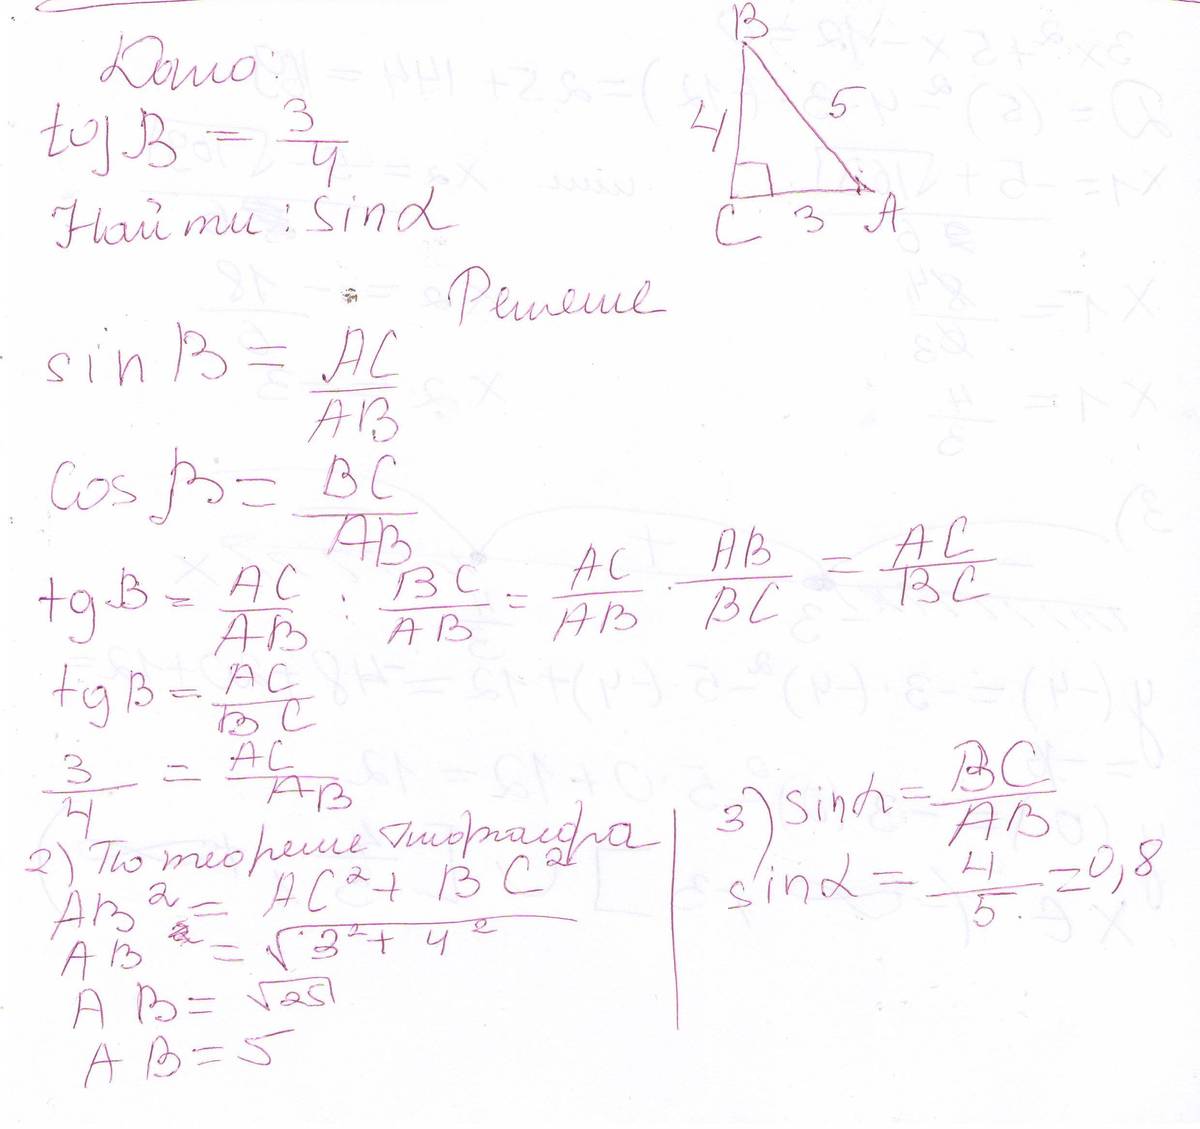 Дано:
tg B = 3/4
Найти: sin α
B
4
5
C
3
A
Решение
sin B = AC/AB
cos B = BC/AB
tg B = AC/AB : BC/AB = AC/AB · AB/BC = AC/BC
tg B = AC/BC
3/4 = AC/AB
2) По теореме
AB² = AC² + BC²
AB = √3² + 4²
AB = √25
AB = 5
3) sin α = BC/AB
sin α = 4/5 = 0,8